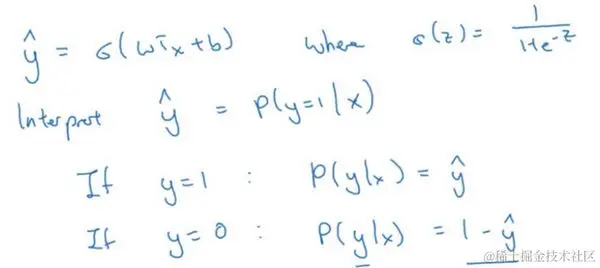 ŷ = σ(wᵀx + b) where σ(z) = 1/(1+e^-z)
Interpret ŷ = p(y=1|x)
If y=1 : p(y|x) = ŷ
If y=0 : p(y|x) = 1 - ŷ
@稀土掘金技术社区